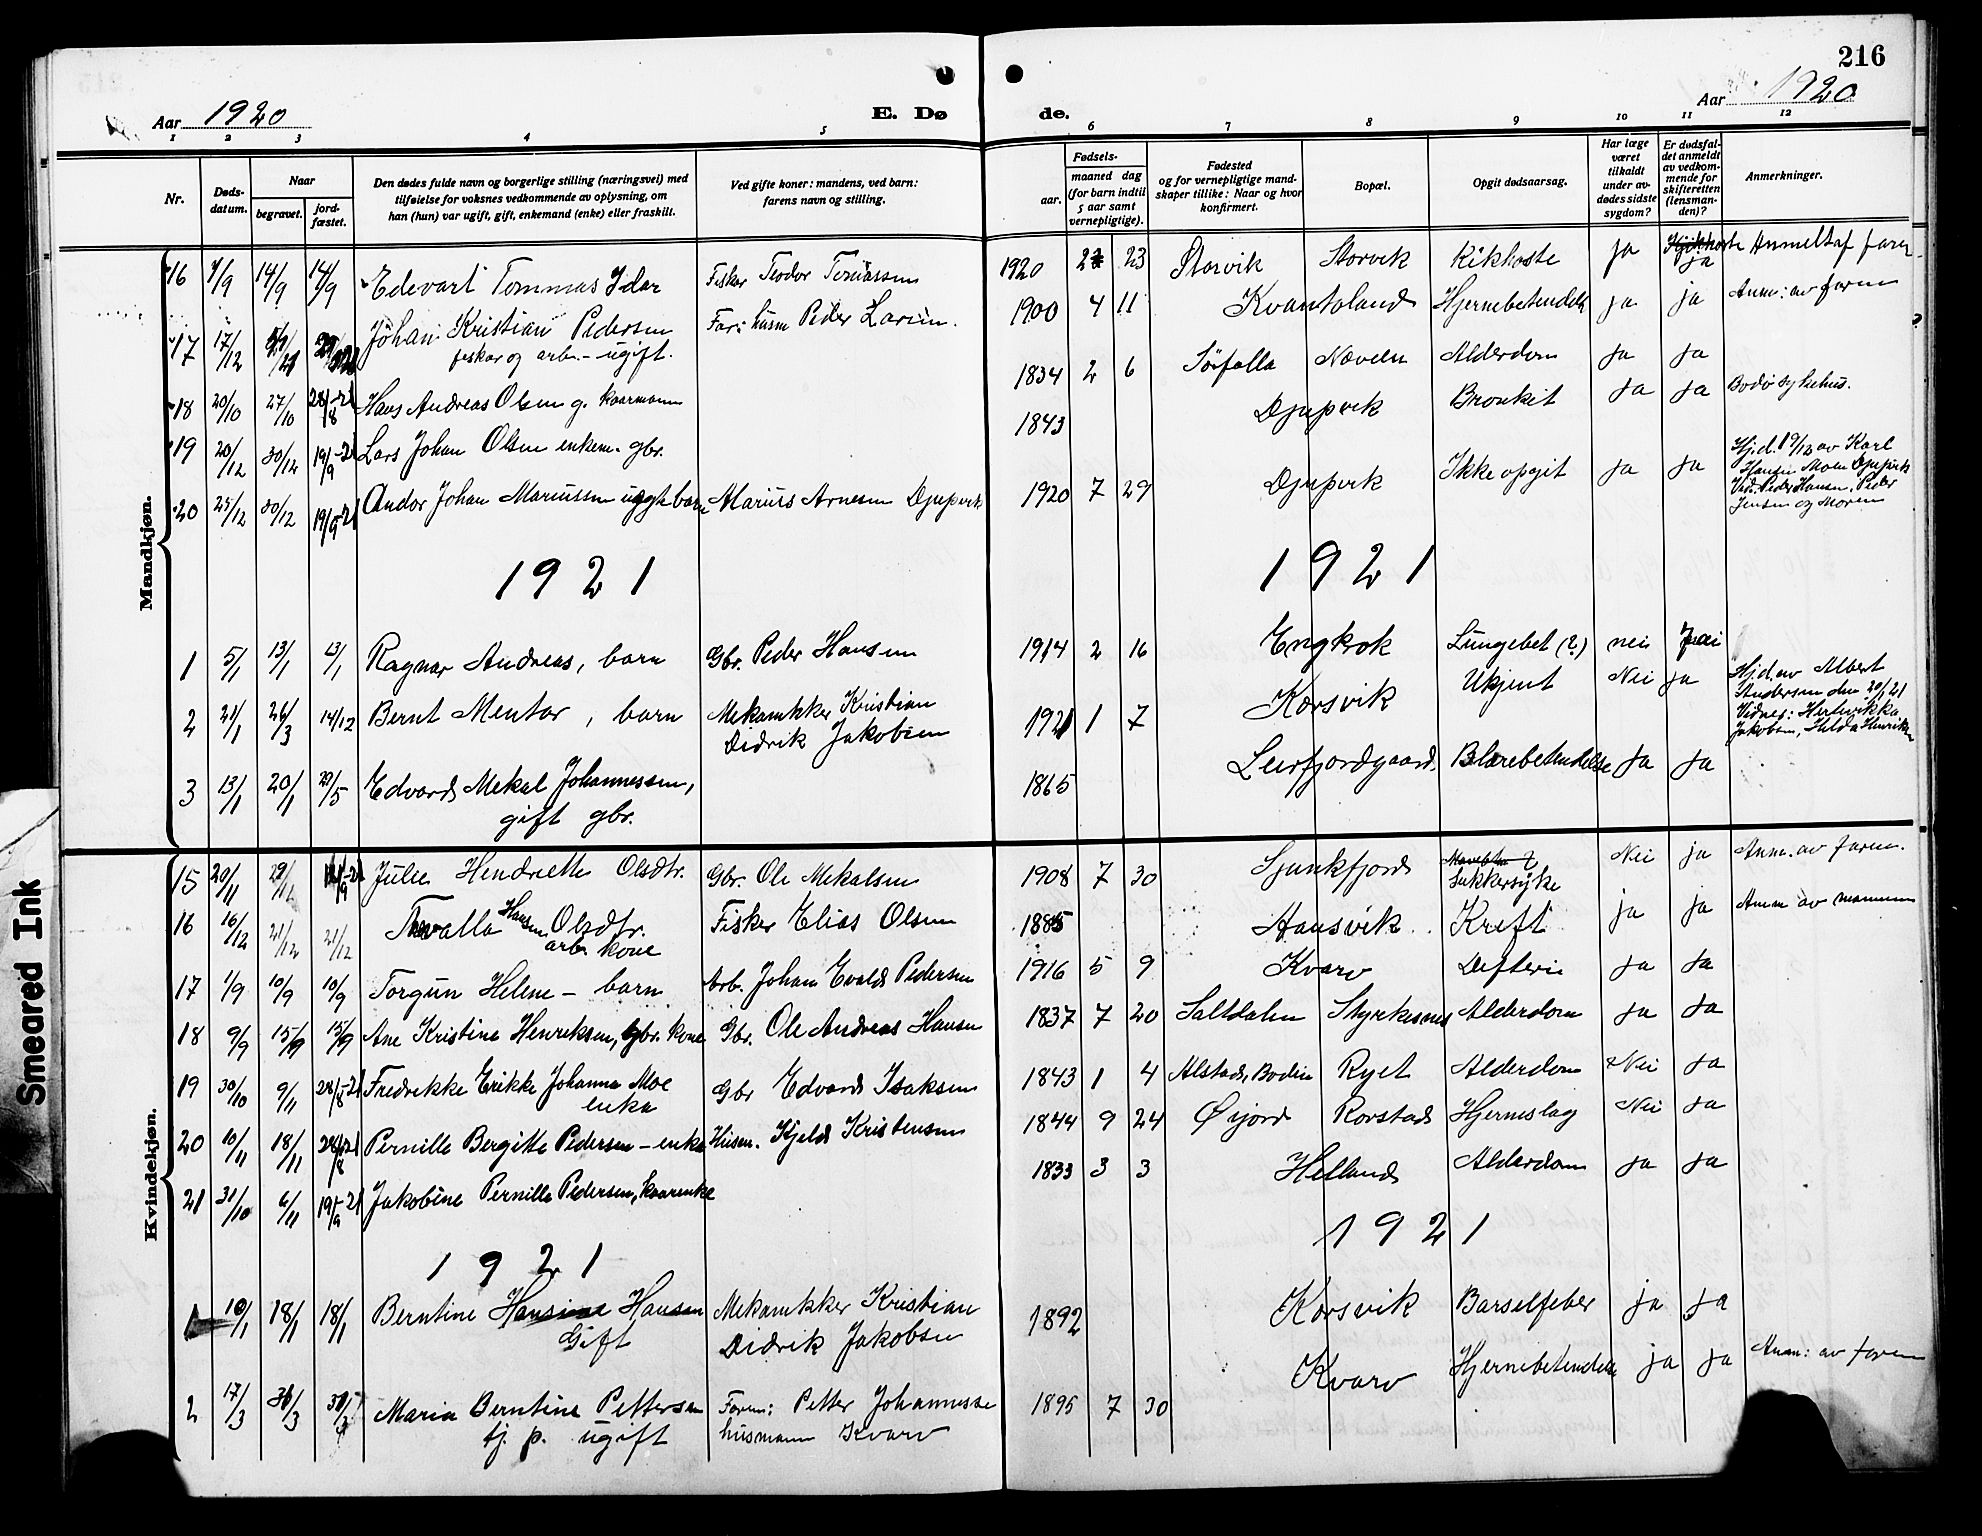 216
Aar 1920
E. Dø
de.
Aar 1920
1 2 3 4 5 6 7 8 9 10 11 12
Nr.
Døds-
datum.
Naar
begravet.
jord-
fæstet.
Den dødes fulde navn og borgerlige stilling (næringsvei) med
tilføielse for voksnes vedkommende av oplysning, om
han (hun) var ugift, gift, enkemand (enke) eller fraskilt.
Ved gifte koner: mandens, ved barn:
farens navn og stilling.
Fødsels-
aar.
maaned dag
(for barn indtil
5 aar samt
vernepligtige).
Fødested
og for vernepligtige mand-
skaper tillike: Naar og hvor
konfirmert.
Bopæl.
Opgit dødsaarsag.
Har læge
været
tilkaldt
under av-
dødes sidste
sygdom?
Er dødsfal-
det anmeldt
av vedkom-
mende for
skifteretten
(lensman-
den)?
Anmerkninger.
Mandkjøn.
16 7/9 14/9 14/9 Edevart Tommas Idar Fisker Teodor 1920 23 Storvik Storvik Kikhoste ja ja Anmelt af faren
17 17/12 Johan Kristian Pedersen Far: husm Peder Larsen. 1900 4 11 Kvantoland Hjernebetendelse ja ja Anm: av faren
fisker og arb. - ugift.
18 20/10 27/10 28/8-21 Hans Andreas Olsen g. kaarmann 1834 2 6 Sørfolla Næveln Alderdom ja ja
19 20/12 30/12 19/9-21 Lars Johan Olsen enkem. gbr. 1843 Djupvik Bronkit ja ja Bodø sykehus.
20 25/12 30/12 19/9-21 Andor Johan Mariussen barn Marius Arnesen Djupvik 1920 7 29 Djupvik Ikke opgit ja ja Hj.d. 19/12 av Karl
Hansen Moen Djupvik
Vid: Peder Hansen, Peder
Jensen og Moren
1921 1921
1 5/1 13/1 13/1 Ragnar Andreas, barn Gbr. Peder Hansen 1914 2 16 Engkrok Lungebet (?) nei
2 21/1 26/3 14/12 Bernt Mentor, barn Mekanikker Kristian
Didrik Jakobsen 1921 1 7 Korsvik Ukjent Nei ja Hj.d. av Albert
Andersen den 20/1 21
Vidnes: Hertvikka
Jakobsen, Hulda Henriksen
3 13/1 20/1 29/5 Edvard Mekal Johannessen,
gift gbr. 1865 Leirfjordgaard. Blærebetendelse ja ja
Kvindekjøn.
15 20/11 Julie Hendriette Olsdtr. Gbr. Ole Mekalsen 1908 7 30 Sjunkfjord Sukkersyke Nei ja Anm. av faren.
16 16/12 21/12 21/12 Hansen Olsdtr. Fisker Elias Olsen 1885 Hansvik Kreft ja ja Anm av mannen
arb. kone
17 1/9 10/9 10/9 Torgun Helene - barn Arb. Johan Evald Pedersen 1916 5 9 Kvarv Difteri ja ja
18 9/9 15/9 15/9 Ane Kristine Henriksen, gbr. kone Gbr. Ole Andreas Hansen 1837 7 20 Saltdalen Styrkesnes Alderdom ja ja
19 30/10 9/11 28/8-21 Fredrikke Erikke Johanna Moe Gbr Edvard Isaksen 1843 1 4 Alstad, Bodin Ryet Alderdom Nei ja
enke
20 10/11 18/11 28/8-21 Pernille Bergitte Pedersen - enke Husm. Kjeld Kristensen 1844 9 24 Øijord Rorstad Hjerneslag Nei ja
21 31/10 6/11 19/9-21 Jakobine Pernille Pedersen, kaarenke 1833 3 3 Helland Alderdom ja ja
1921 1921
1 10/1 18/1 18/1 Berntine Hansine Hansen Mekanikker Kristian 1892 Korsvik Barselfeber ja ja
Gift Didrik Jakobsen
2 17/3 Maria Berntine Pettersen Faren: Petter Johannesse 1895 7 30 Kvarv Hjernebetendelse ja ja Anm: av faren
tj. p. ugift husmann Kvarv
Smeared Ink